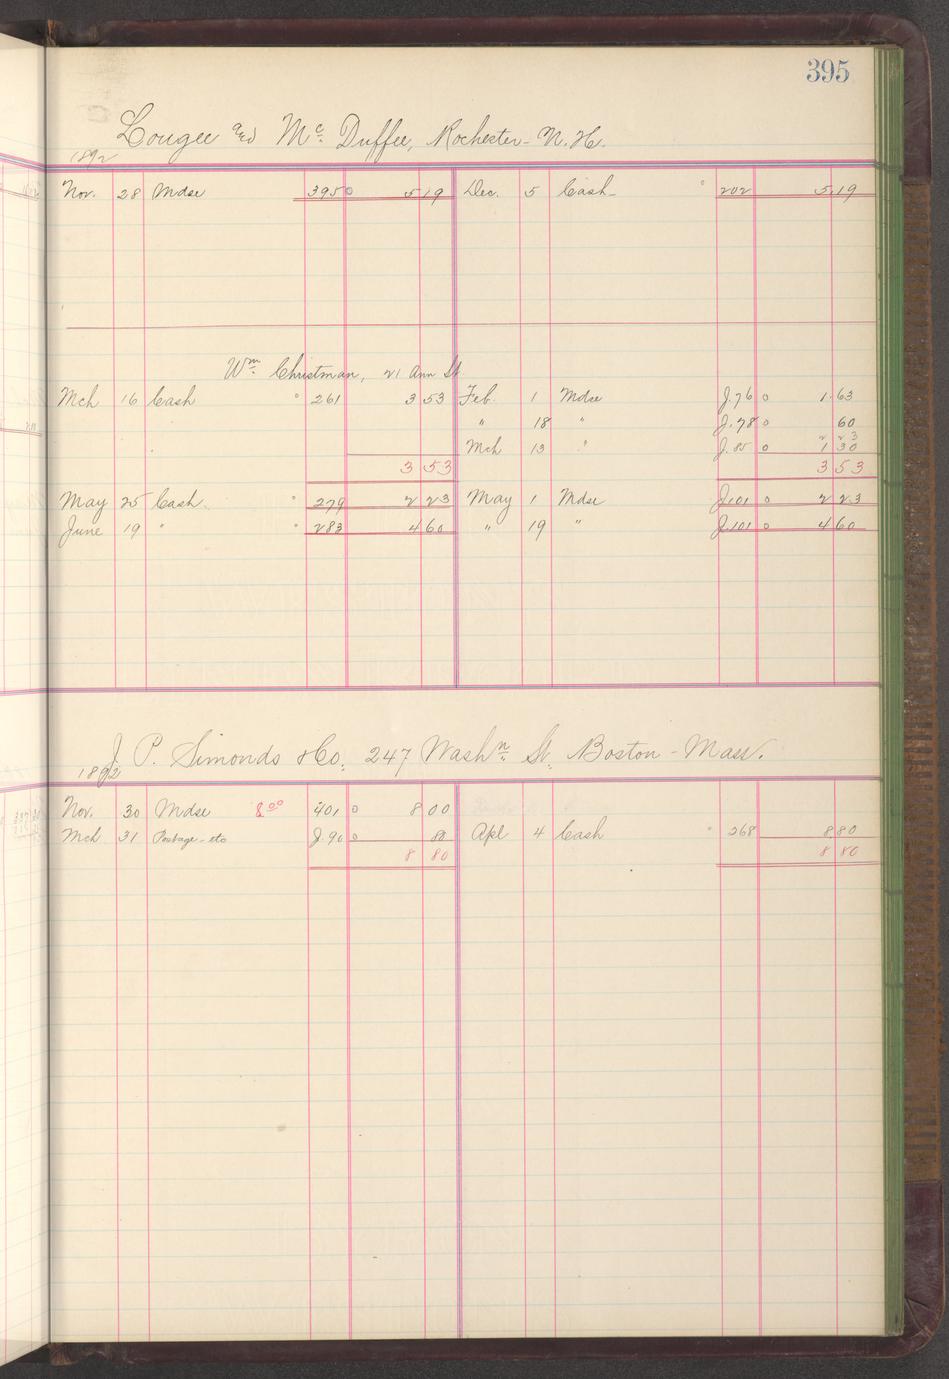 395
Lougee and Mc Duffee, Rochester - N. H.
1892
Nov. 28 Mdse 395 0 5 19 Dec. 5 Cash 202 5.19
Wm Christman, 21 Ann St.
Mch 16 Cash " 261 3 53 Feb. 1 Mdse J. 76 0 1.63
" 18 " J. 78 0 60
2 23
Mch 13 " J. 85 0 1 30
3 53 3 53
May 25 Cash. " 279 2 23 May 1 Mdse J101 0 2 23
June 19 " " 283 4 60 " 19 " J.101 0 4 60
J. P. Simonds & Co. 247 Washn St. Boston - Mass.
1892
Nov. 30 Mdse 8.00 401 0 8 00
Mch 31 Postage - etc J. 90 0 80 Apl 4 Cash " 268 8.80
8 80 8 80